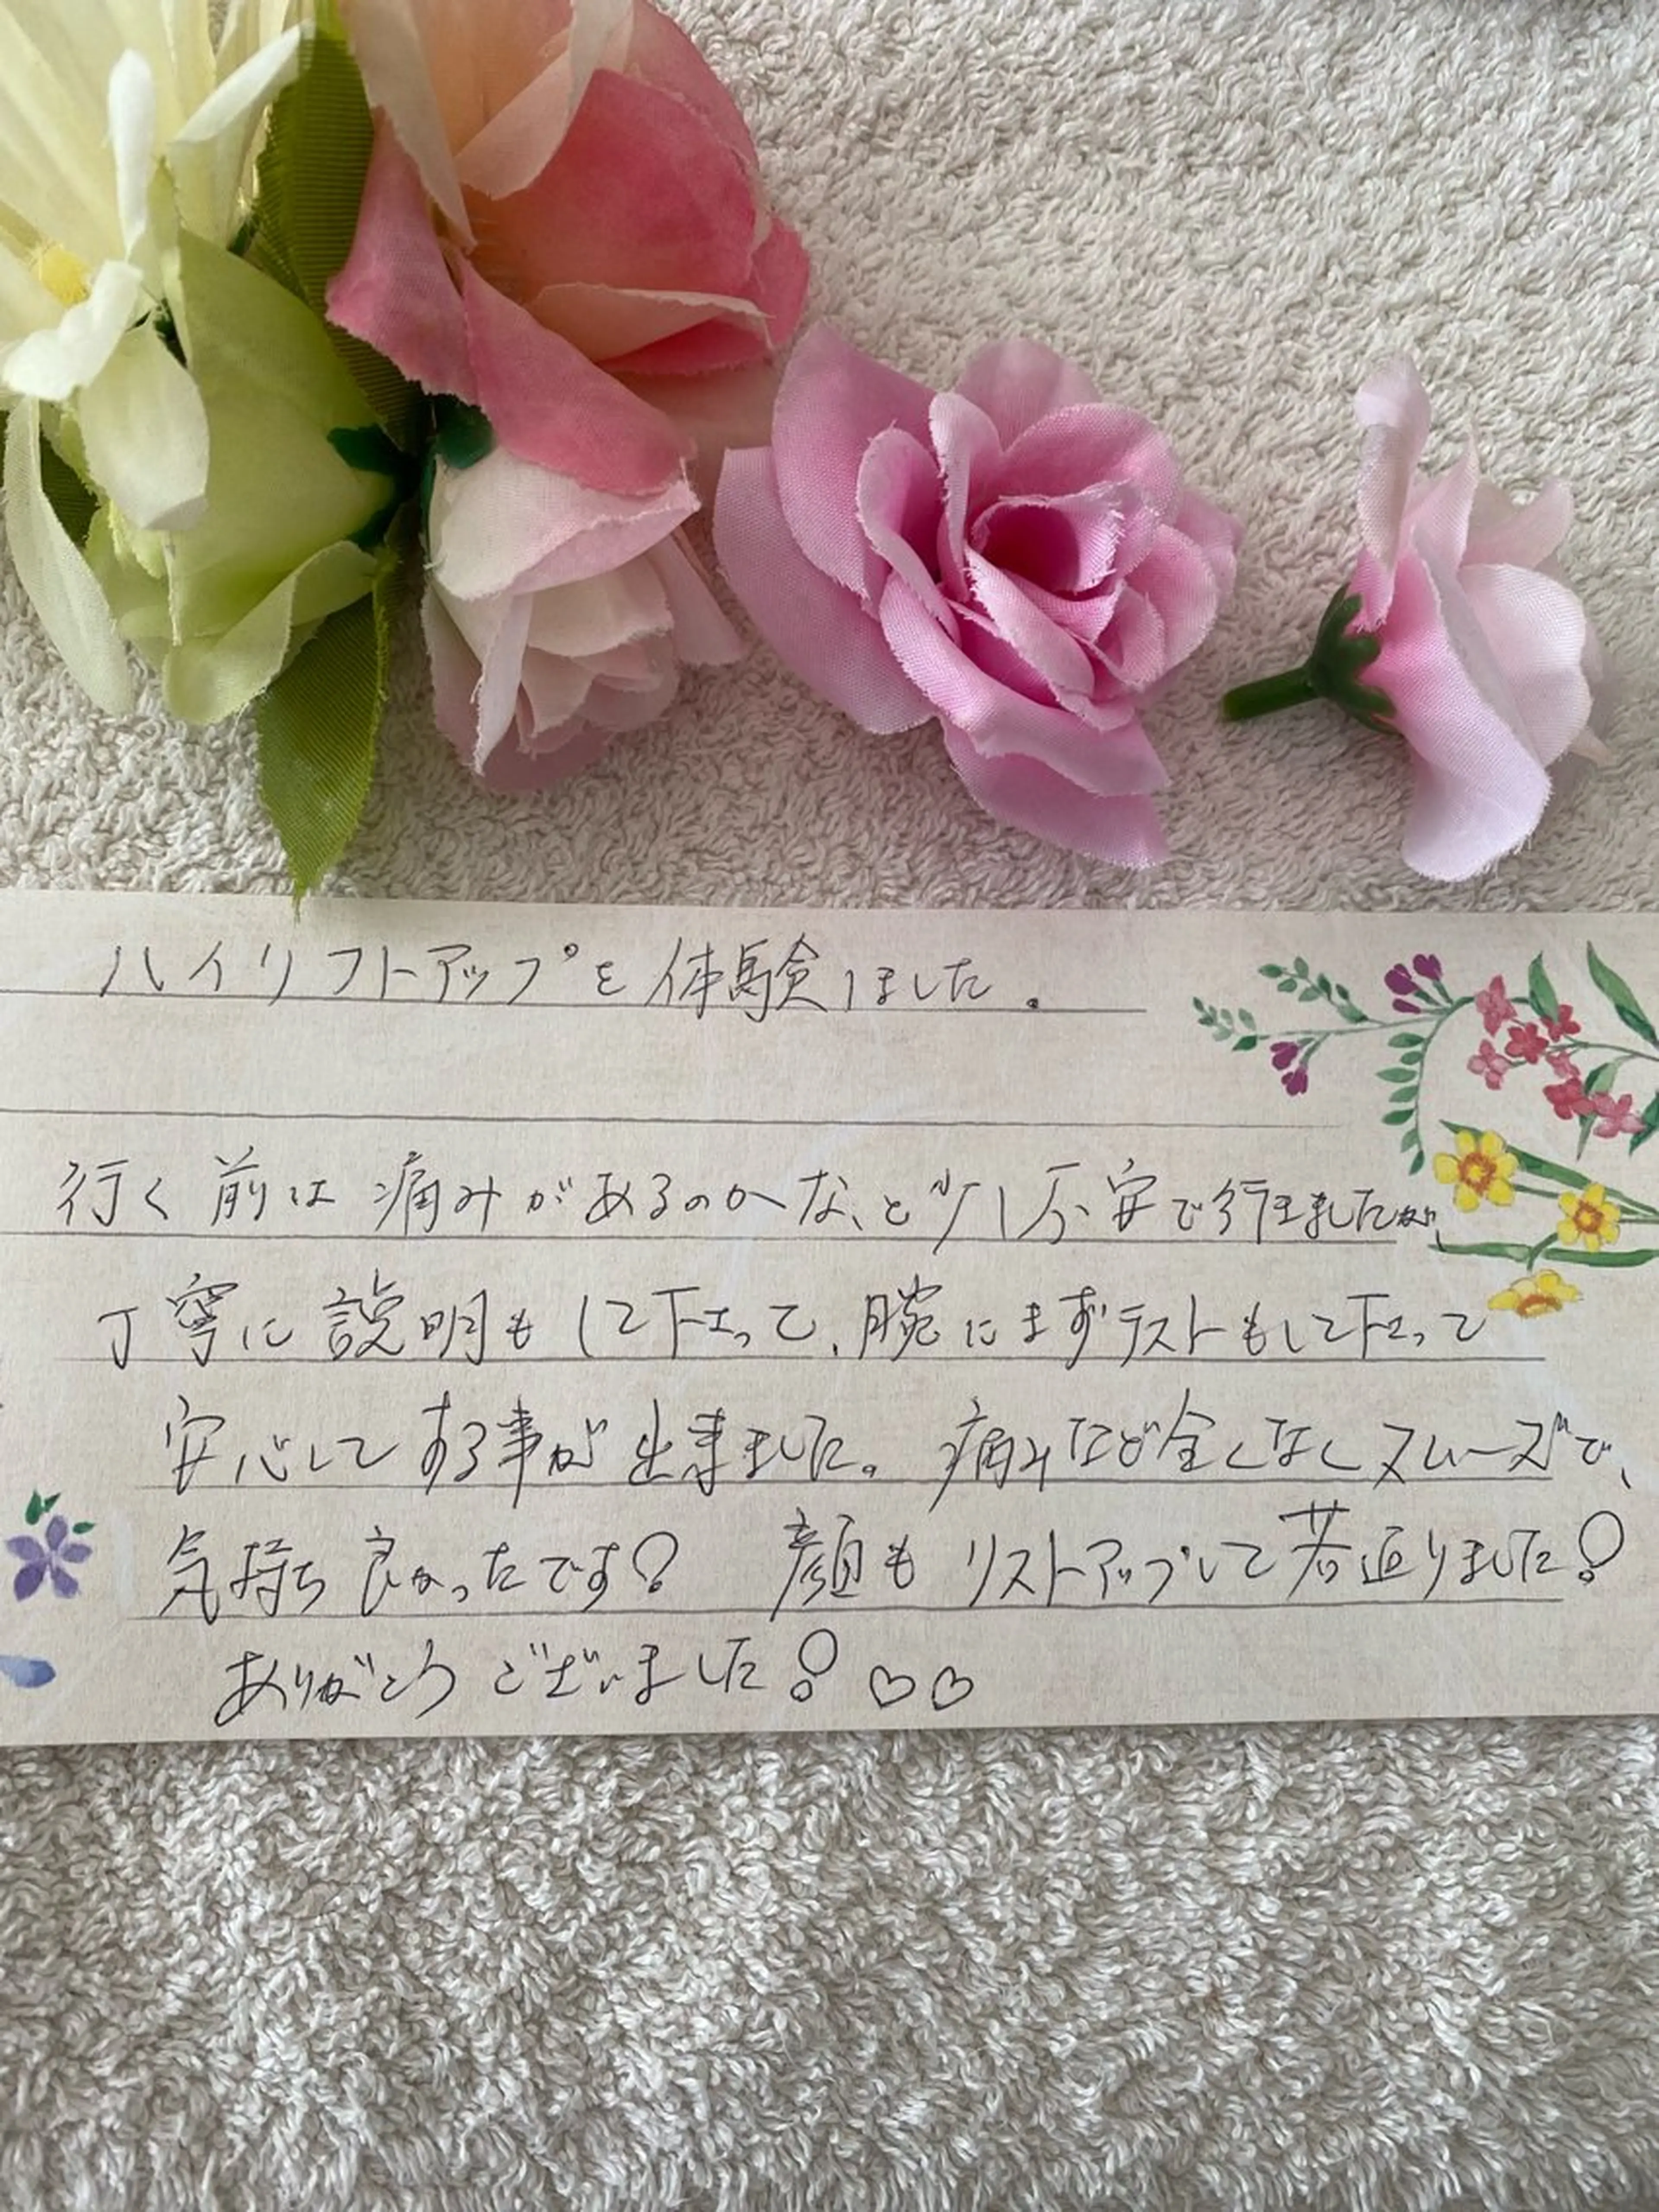 ハイリフトアップを体験しました.
行く前は痛みがあるのかな、と少し不安で行きましたが、
丁寧に説明もして下さって、腕にまずテストもして下さって
安心してする事が出来ました。痛みなど全くなくスムーズで、
気持ち良かったです! 顔もリストアップして若返りました!
ありがとうございました!♡♡